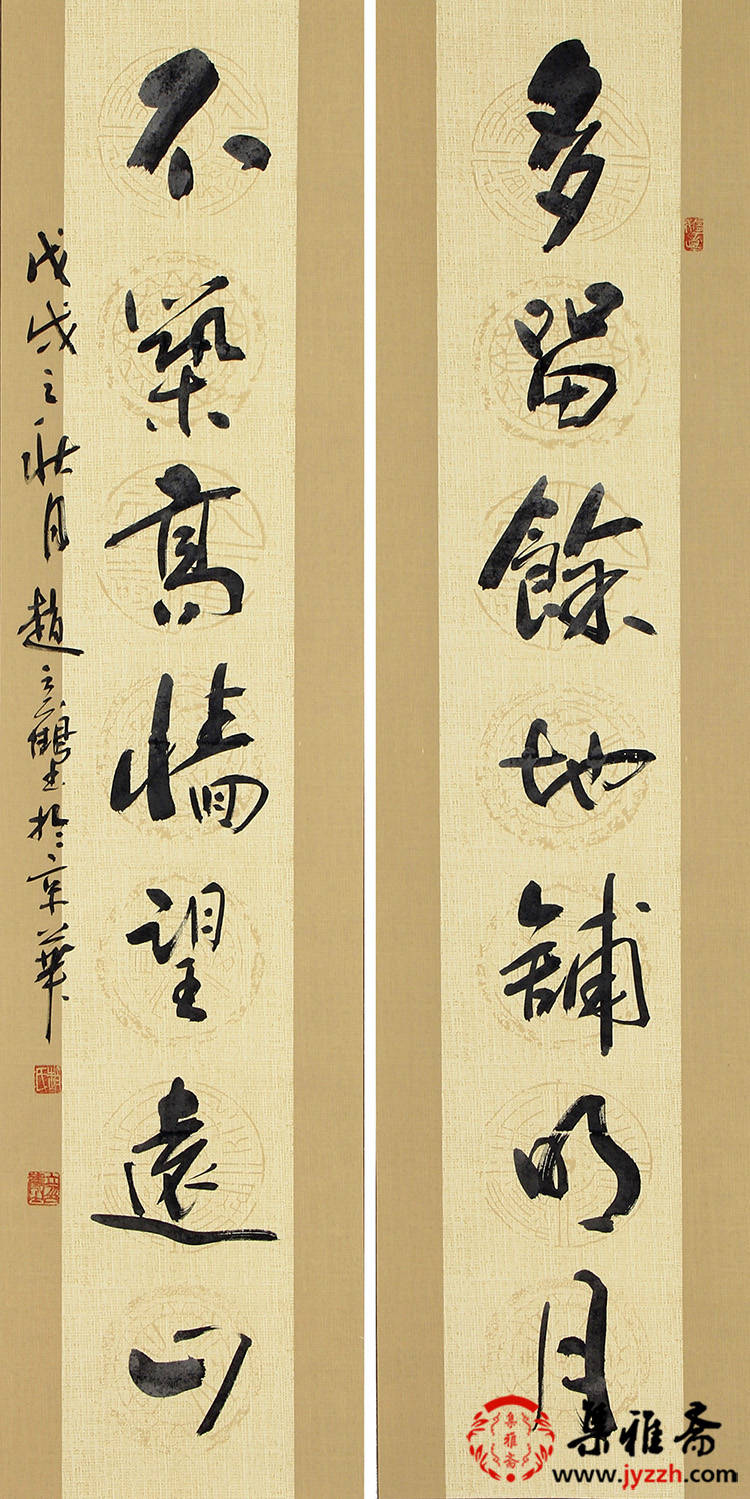 多留餘地舖明月
不築高牆望遠山
戊戌之秋月趙立鶴書於京華
集雅斋
www.jyzzh.com